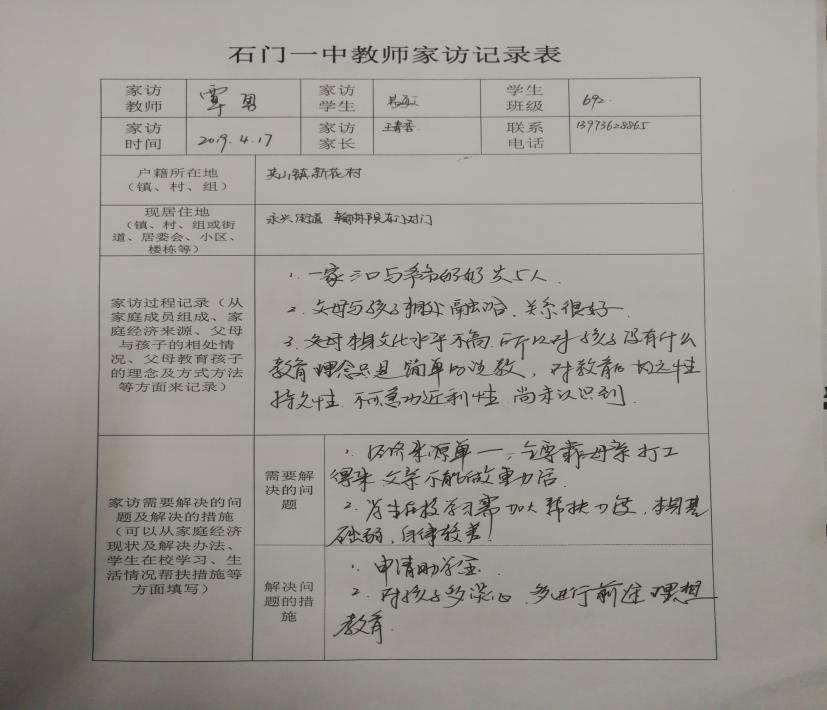 石门一中教师家访记录表
家访教师 覃勇 家访学生 学生班级 692
家访时间 2019.4.17 家访家长 王青香 联系电话 13973628865
户籍所在地（镇、村、组） 夹山镇新花村
现居住地（镇、村、组或街道、居委会、小区、楼栋等） 永兴街道 对门
家访过程记录（从家庭成员组成、家庭经济来源、父母与孩子的相处情况、父母教育孩子的理念及方式方法等方面来记录）
1. 一家三口与爷爷奶奶共5人.
2. 父母与孩子相处融洽，关系很好.
3. 父母文化水平不高，所以对孩子没有什么
教育理念只是简单的说教，对教育的
持久性、不可急功近利性尚未认识到.
家访需要解决的问题及解决的措施（可以从家庭经济现状及解决办法、学生在校学习、生活情况帮扶措施等方面填写）
需要解决的问题
1. 经济来源单一，主要靠母亲打工
得来 父亲不能做重力活.
2. 学生在校学习需加大帮扶力度，基
础弱，自律较差！
解决问题的措施
1. 申请助学金
2. 对孩子多谈心，多进行前途理想
教育.